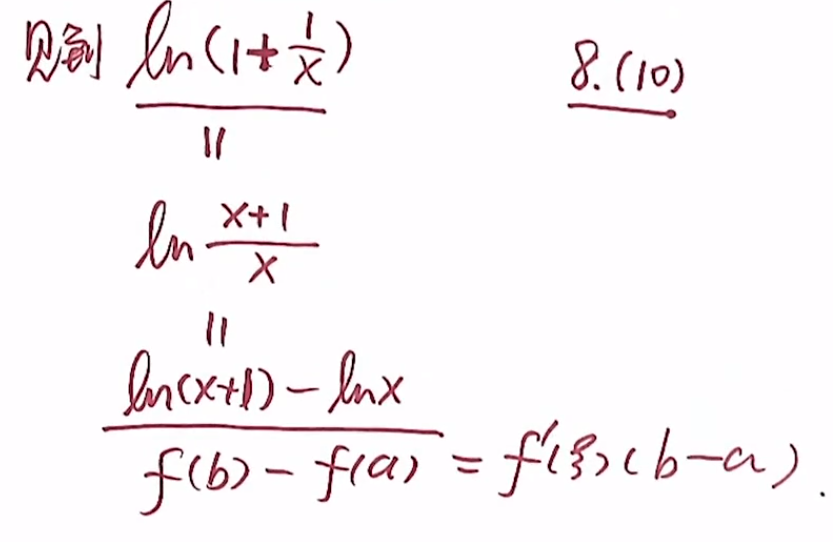 见到 ln(1+1/x) 8.(10)
||
ln (x+1)/x
||
ln(x+1)-lnx
f(b)-f(a)=f'(ξ)(b-a).